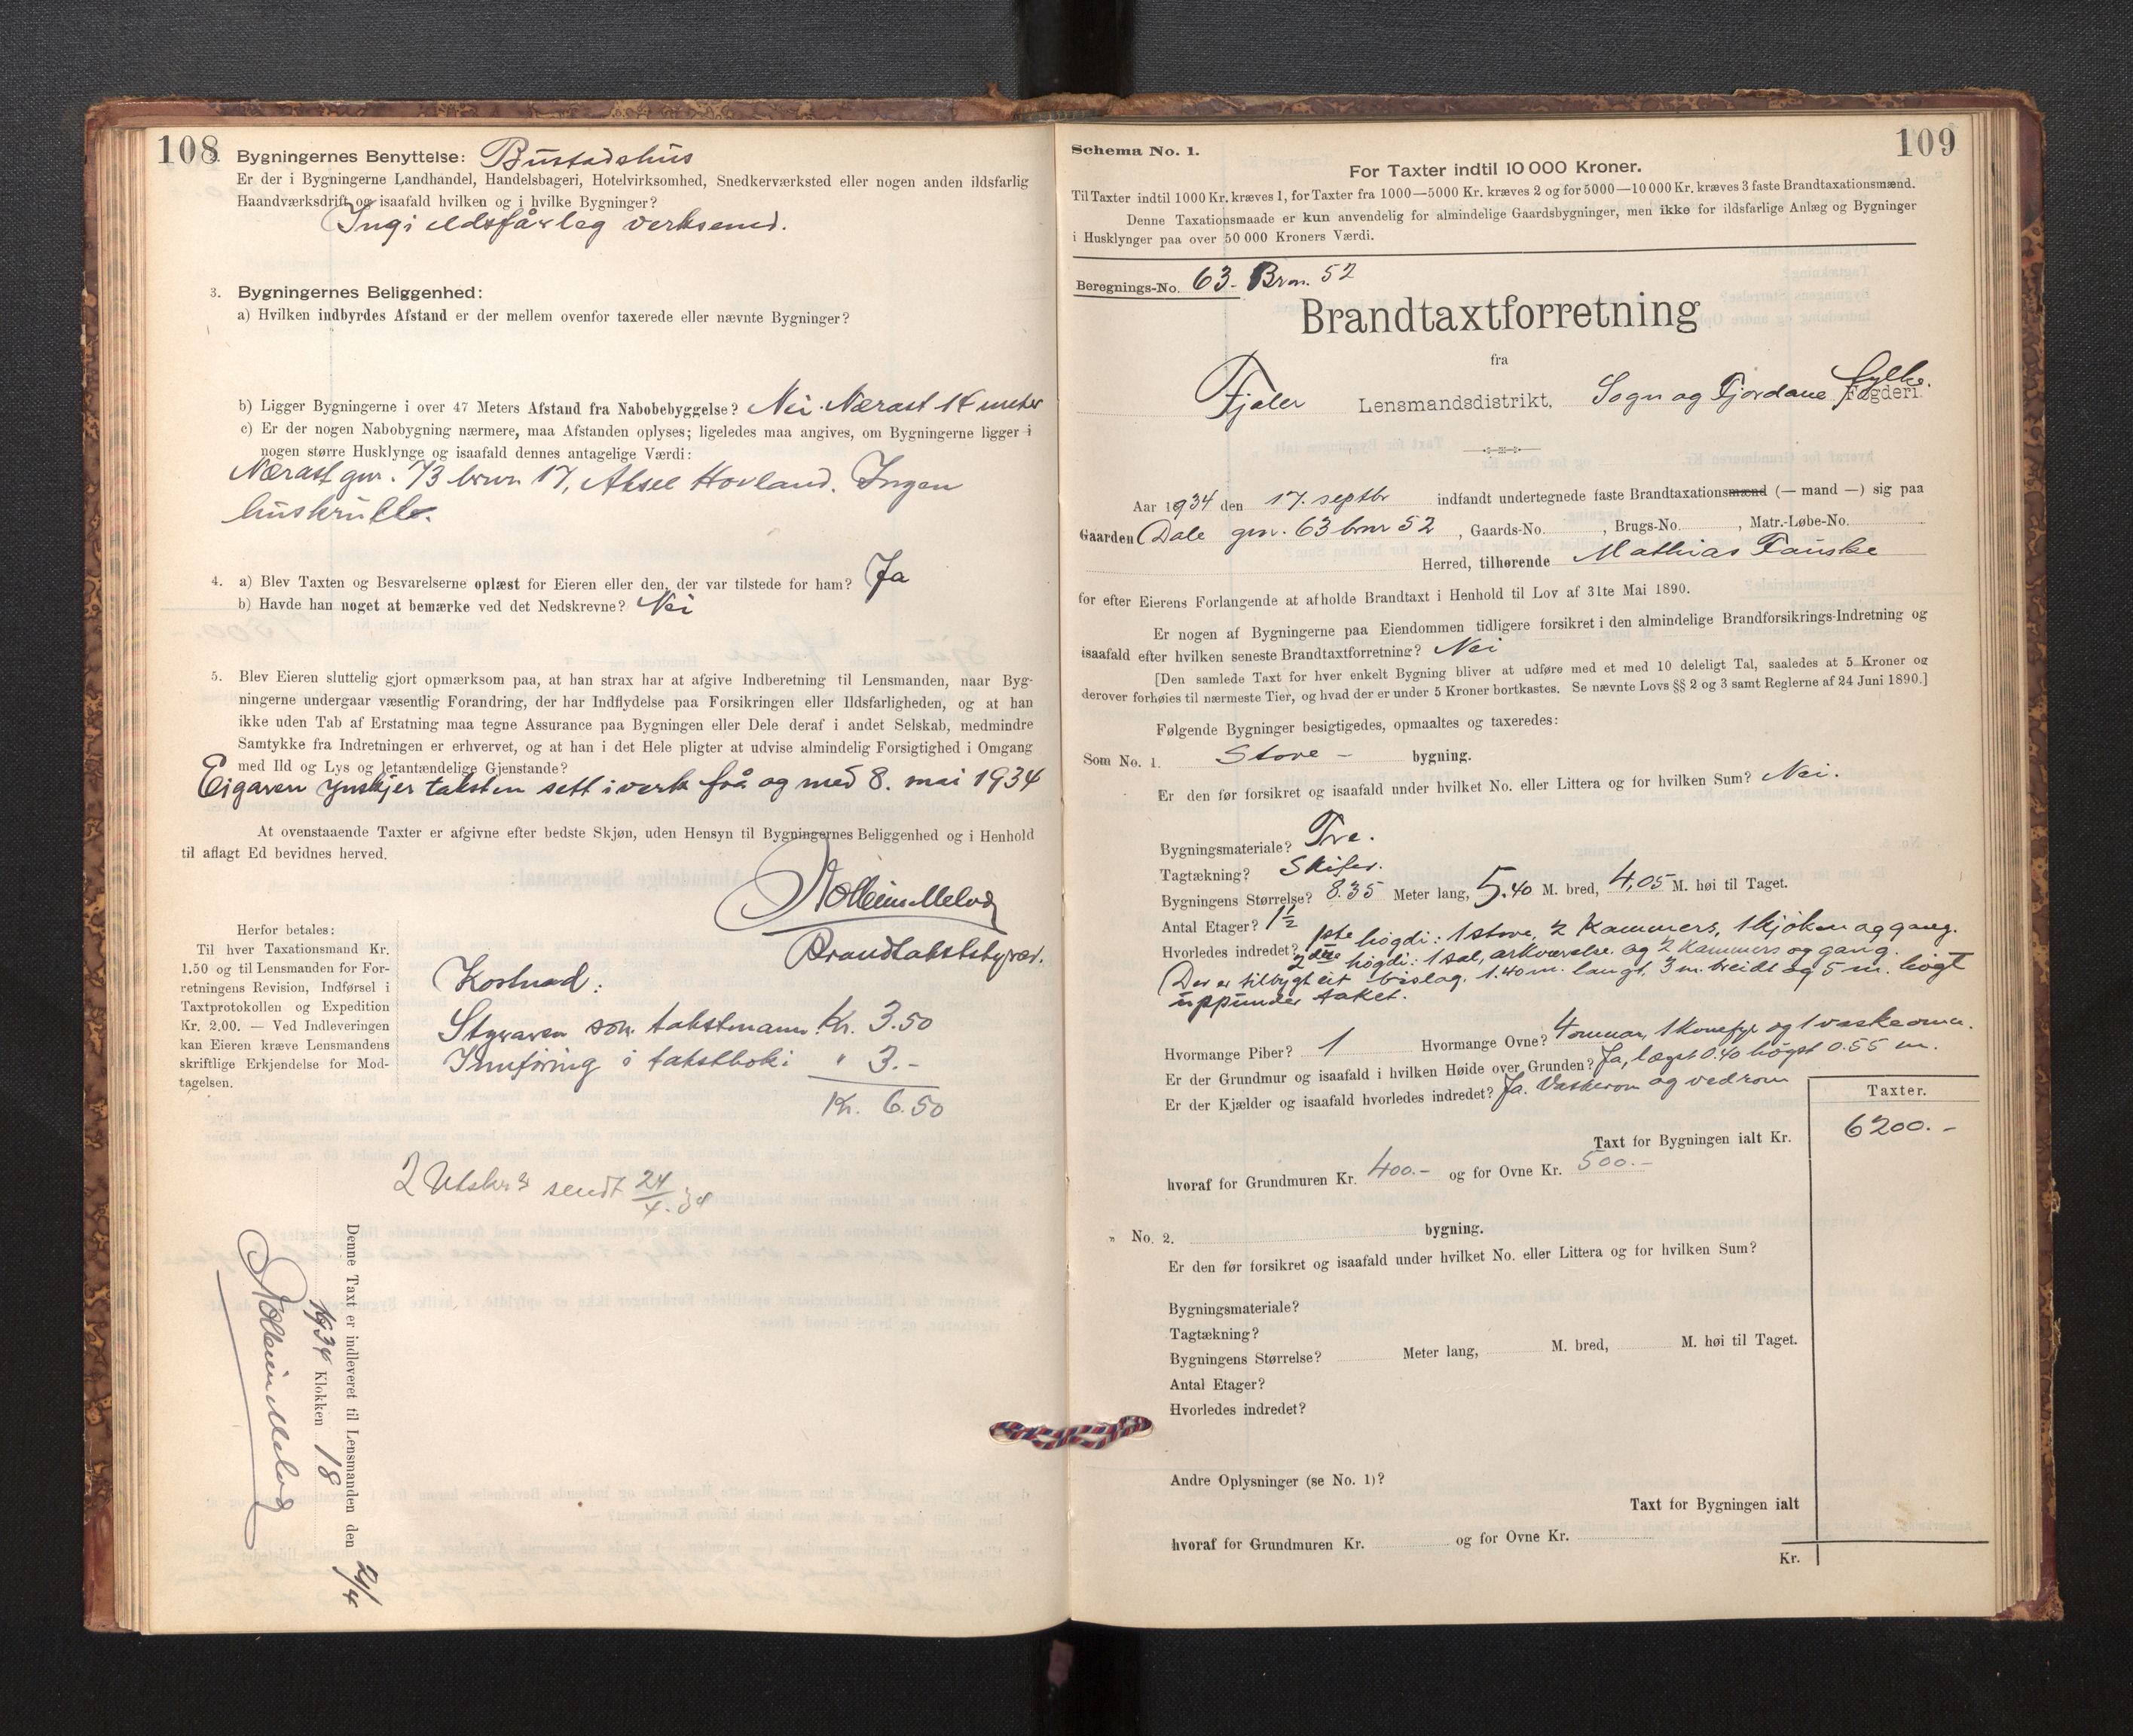 108
2. Bygningernes Benyttelse: Bustadshus
Er der i Bygningerne Landhandel, Handelsbageri, Hotelvirksomhed, Snedkerværksted eller nogen anden ildsfarlig
Haandværksdrift og isaafald hvilken og i hvilke Bygninger?
Ingi eldsfårleg verksemd.
3. Bygningernes Beliggenhed:
a) Hvilken indbyrdes Afstand er der mellem ovenfor taxerede eller nævnte Bygninger?
b) Ligger Bygningerne i over 47 Meters Afstand fra Nabobebyggelse? Nei. Nærast 14 meter
c) Er der nogen Nabobygning nærmere, maa Afstanden oplyses; ligeledes maa angives, om Bygningerne ligger i
nogen større Husklynge og isaafald dennes antagelige Værdi:
Nærast gnr. 73 brnr 17, Aksel Hovland. Ingen
huskrull.
4. a) Blev Taxten og Besvarelserne oplæst for Eieren eller den, der var tilstede for ham? Ja
b) Havde han noget at bemærke ved det Nedskrevne? Nei
5. Blev Eieren sluttelig gjort opmærksom paa, at han strax har at afgive Indberetning til Lensmanden, naar Byg-
ningerne undergaar væsentlig Forandring, der har Indflydelse paa Forsikringen eller Ildsfarligheden, og at han
ikke uden Tab af Erstatning maa tegne Assurance paa Bygningen eller Dele deraf i andet Selskab, medmindre
Samtykke fra Indretningen er erhvervet, og at han i det Hele pligter at udvise almindelig Forsigtighed i Omgang
med Ild og Lys og letantændelige Gjenstande?
Eigaren ynskjer taksten sett i verk frå og med 8. mai 1934
At ovenstaaende Taxter er afgivne efter bedste Skjøn, uden Hensyn til Bygningernes Beliggenhed og i Henhold
til aflagt Ed bevidnes herved.
Brandtakststyrar.
Herfor betales:
Til hver Taxationsmand Kr.
1.50 og til Lensmanden for For-
retningens Revision, Indførsel i
Taxtprotokollen og Expedition
Kr. 2.00. — Ved Indleveringen
kan Eieren kræve Lensmandens
skriftlige Erkjendelse for Mod-
tagelsen.
Kostnad:
Styraren som takstmann Kr. 3.50
Innføring i takstboki " 3.-
Kr. 6.50
2 Utskr. sendt 24/4.34
Denne Taxt er indleveret til Lensmanden den 24/4
1934 Klokken 18
109
Schema No. 1.
For Taxter indtil 10 000 Kroner.
Til Taxter indtil 1000 Kr. kræves 1, for Taxter fra 1000—5000 Kr. kræves 2 og for 5000—10 000 Kr. kræves 3 faste Brandtaxationsmænd.
Denne Taxationsmaade er kun anvendelig for almindelige Gaardsbygninger, men ikke for ildsfarlige Anlæg og Bygninger
i Husklynger paa over 50 000 Kroners Værdi.
Beregnings-No. 63. Brnr. 52
Brandtaxtforretning
fra
Fjaler Lensmandsdistrikt, Sogn og Fjordane Fylke. Fogderi.
Aar 1934 den 17. septbr indfandt undertegnede faste Brandtaxationsmænd (— mand —) sig paa
Gaarden Dale gnr. 63 brnr 52, Gaards-No. , Brugs-No. , Matr.-Løbe-No.
Herred, tilhørende Mathias Fauske
for efter Eierens Forlangende at afholde Brandtaxt i Henhold til Lov af 31te Mai 1890.
Er nogen af Bygningerne paa Eiendommen tidligere forsikret i den almindelige Brandforsikrings-Indretning og
isaafald efter hvilken seneste Brandtaxtforretning? Nei
[Den samlede Taxt for hver enkelt Bygning bliver at udføre med et med 10 deleligt Tal, saaledes at 5 Kroner og
derover forhøies til nærmeste Tier, og hvad der er under 5 Kroner bortkastes. Se nævnte Lovs §§ 2 og 3 samt Reglerne af 24 Juni 1890.]
Følgende Bygninger besigtigedes, opmaaltes og taxeredes:
Som No. 1. Stove - bygning.
Er den før forsikret og isaafald under hvilket No. eller Littera og for hvilken Sum? Nei.
Bygningsmateriale? Tre.
Tagtækning? Skifer.
Bygningens Størrelse? 8.35 Meter lang, 5.40 M. bred, 4,05 M. høi til Taget.
Antal Etager? 1½
Hvorledes indredet? 1ste høgdi: 1 stove, 2 Kammers, 1 kjøken og gang.
2dre høgdi: 1 sal, arkværelse og 2 kammers og gang.
Der er tilbygt eit bislag, 1.40 m. langt, 3 m. breidt og 5 m. høgt
uppunder taket.
Hvormange Piber? 1 Hvormange Ovne? 4 omnar, 1 komfyr og 1 vaskeomn.
Er der Grundmur og isaafald i hvilken Høide over Grunden? Ja, lægst 0.40 høgst 0.55 m.
Er der Kjælder og isaafald hvorledes indredet? Ja. Vaskerom og vedrom
Taxter.
Taxt for Bygningen ialt Kr. 6200.-
hvoraf for Grundmuren Kr. 400.- og for Ovne Kr. 500.-
" No. 2. bygning.
Er den før forsikret og isaafald under hvilket No. eller Littera og for hvilken Sum?
Bygningsmateriale?
Tagtækning?
Bygningens Størrelse? Meter lang, M. bred, M. høi til Taget.
Antal Etager?
Hvorledes indredet?
Andre Oplysninger (se No. 1)?
Taxt for Bygningen ialt
hvoraf for Grundmuren Kr. og for Ovne Kr.
Kr.